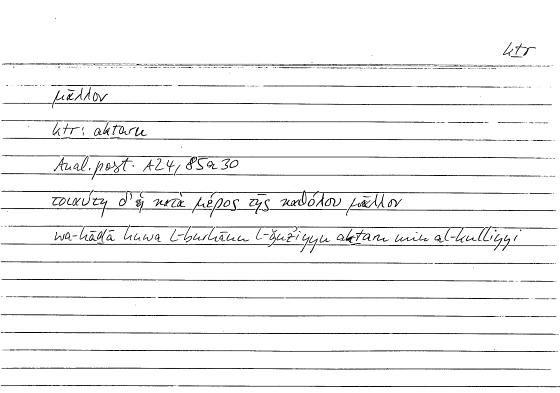 kṯr
μᾶλλον
kṯr: akṯaru
Anal. post. A24, 85a30
τοιαύτη δ' ἡ κατὰ μέρος τῆς καθόλου μᾶλλον
wa-hāḏā huwa l-burhānu l-ǧuzʾiyyu akṯaru min al-kulliyyi